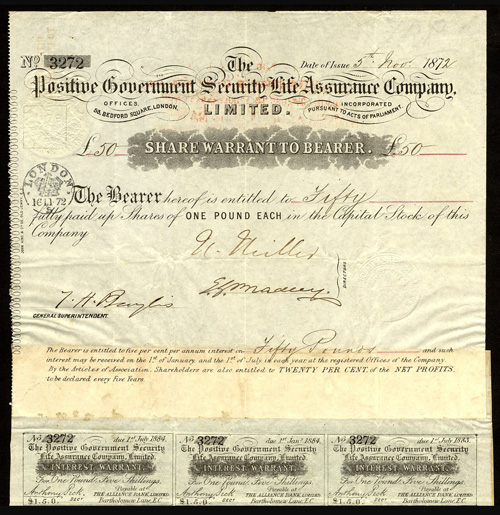 No 3272
The
Date of Issue 5th Nov. 1872
Positive Government Security Life Assurance Company,
OFFICES,
BEDFORD SQUARE, LONDON.
LIMITED.
INCORPORATED
PURSUANT TO ACTS OF PARLIAMENT.
£50 SHARE WARRANT TO BEARER. £50
LONDON
16.11.72
The Bearer hereof is entitled to Fifty
fully paid up Shares of ONE POUND EACH in the Capital Stock of this
Company
DIRECTORS
GENERAL SUPERINTENDENT.
The Bearer is entitled to five per cent per annum interest on Fifty Pounds and such
interest may be received on the 1st of January and the 1st of July in each year, at the registered Offices of the Company.
By the Articles of Association. Shareholders are also entitled to TWENTY PER CENT. of the NET PROFITS,
to be declared every five Years.
No 3272 due 1st July 1884.
The Positive Government Security
Life Assurance Company, Limited.
INTEREST WARRANT.
For One Pound, Five Shillings.
Payable at
Anthony Peek THE ALLIANCE BANK, LIMITED
£1.5.0. Secy Bartholomew Lane, E.C.
No 3272 due 1st Jany 1884.
The Positive Government Security
Life Assurance Company, Limited.
INTEREST WARRANT.
For One Pound, Five Shillings.
Payable at
Anthony Peek THE ALLIANCE BANK, LIMITED
£1.5.0. Secy Bartholomew Lane, E.C.
No 3272 due 1st July 1883.
The Positive Government Security
Life Assurance Company, Limited.
INTEREST WARRANT.
For One Pound, Five Shillings.
Payable at
Anthony Peek THE ALLIANCE BANK, LIMITED
£1.5.0. Secy Bartholomew Lane, E.C.